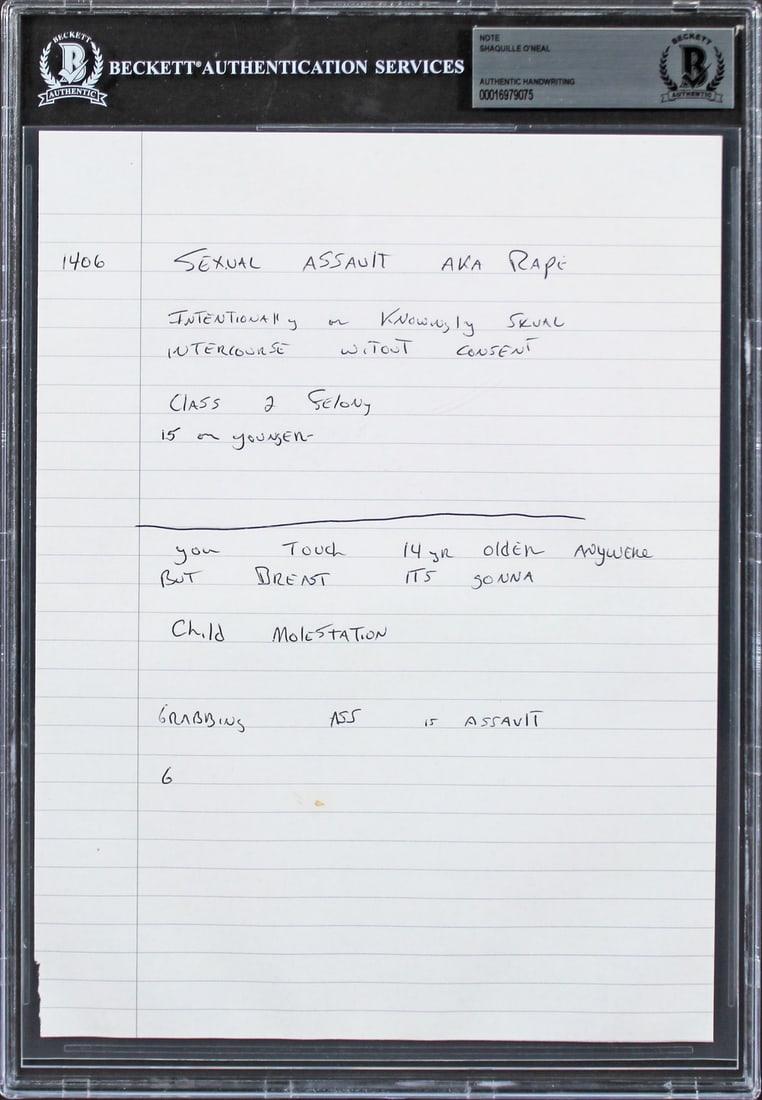 BECKETT
B
AUTHENTIC
BECKETT® AUTHENTICATION SERVICES
NOTE
SHAQUILLE O'NEAL
AUTHENTIC HANDWRITING
00016979075
BECKETT
B
AUTHENTIC
1406 SEXUAL ASSAULT AKA RAPE
INTENTIONAlly or KNOwingly SXUAL
INTERCOURSE WITOUT CONSENT
ClASS 2 FElONy
15 or yOUNgER
you Touch 14 yR OldER ANywERE
BUT BREAST ITS gONNA
Child MOlESTATION
GRABBINg ASS is ASSAUlT
6